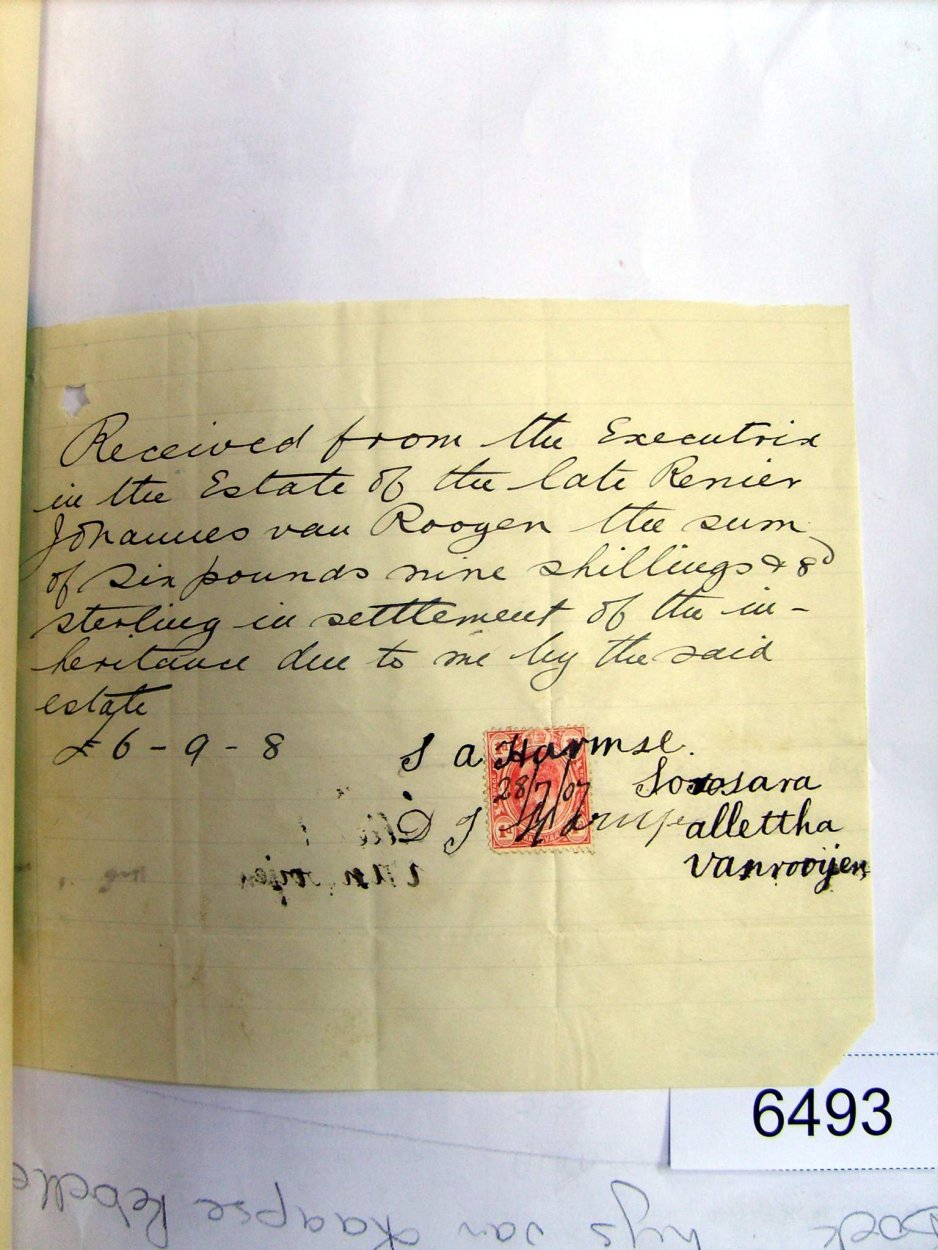 Received from the Executrix
in the Estate of the late Renier
Johannes van Rooyen the sum
of six pounds nine shillings & 8d
sterling in settlement of the in-
heritance due to me by the said
estate
£6-9-8
S a Harmse.
28/7/07
sara
D J
allettha
vanrooijen
6493